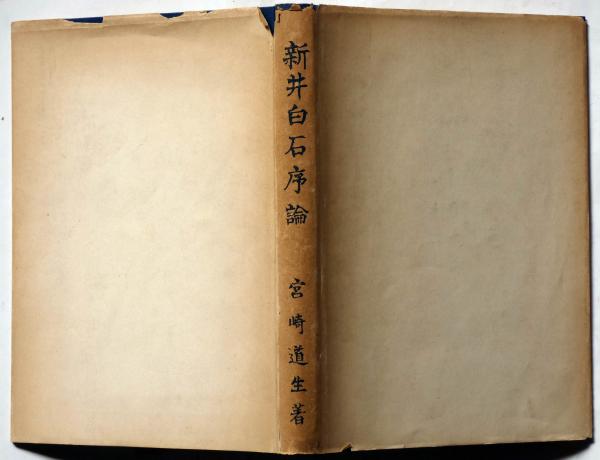 新井白石序論
宮崎道生著